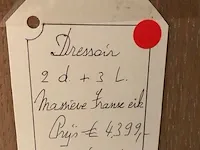 Dressoir
2 d + 3 L.
Massieve Franse eik
Prijs € 4399,-